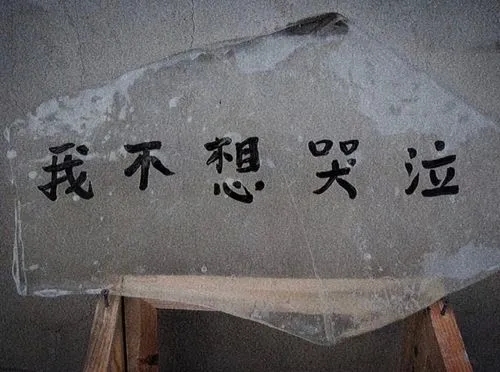 我不想哭泣